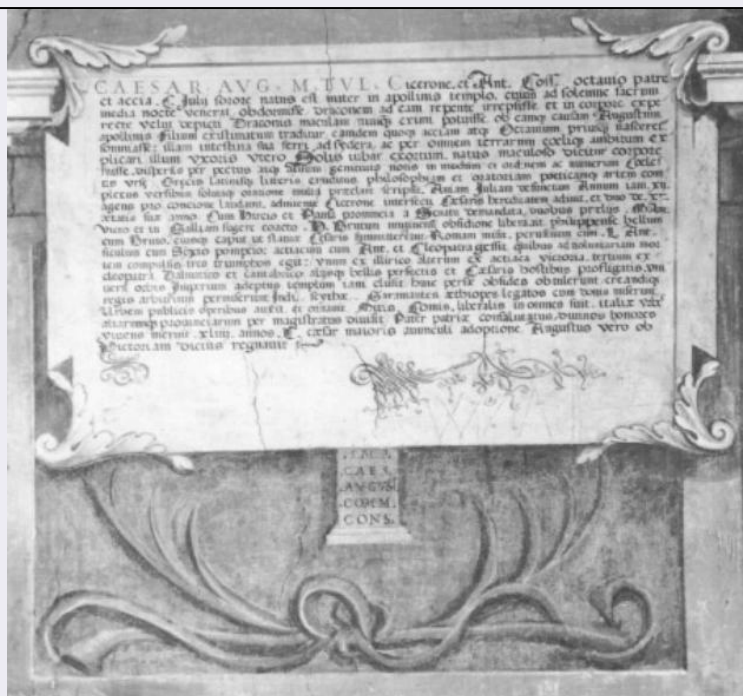 CAESAR AVG. M. TVL. Cicerone. et Ant. Coss. octauio patre
et accia. C. Julij sorore natus est mater in apollinis templo, cum ad solemne sacrum
media nocte venerat obdormisse Draconem ad eam repente irrepsisse et in corpore
velut depicti Draconis maculam nunquam potuisse ob eamque causam Augustum
apollinis Filium existimatum traditur eamdem quoque acciam atque Octauium priusquam nasceretur
somniasse: illam intestina sua ferri ad sydera, ac per omnem terrarum coelique ambitum ex
plicari illum vxoris vtero Solis iubar exortum. natus maculoso dicitur corpore
fuisse, dispersis per pectus atque aluum genitiuis notis in modum et ordinem ac numerum Coeles
tis vrse. Grecis latinisque literis eruditus philosophiam et oratoriam poeticamque artem com
plexus versibus solutaque oratione multa preclare scripsit. Auiam Juliam defunctam Annum iam. xii.
agens pro concione laudauit, adniuente Cicerone interfecti Cesaris hereditatem adiuit, et duo de. xx.
aetatis sue anno. Cum Hircio et Pansa prouincia a Senatu demandata, duobus prelijs.
et in Galliam fugere coacto. D. Brutum obsidione liberauit. philippense bellum
cum Bruto, cuius caput ut statue Cesaris submitteretur Romam misit, perusinum cum. L. Ant.
siculum cum Sexto pompeio: actiacum cum Ant. et Cleopatra gessit, quibus ad voluntariam mor
tem compulsis tres triumphos egit: vnum ex illirico alterum ex actiaca victoria. tertium ex
cleopatra Dalmatico et cantabrico alijsque bellis perfectis et Cesaris hostibus profligatis. vni
uersi orbis Imperium adeptus templum iani clusit huic perse obsides obtulerunt creandique
regis arbitrium permiserunt Indi. scythe. Garamantes ethiopes legatos cum donis miserunt.
Vrbem publicis operibus auxit et ornauit. comis, liberalis in omnes fuit. italiae
prouinciarum per magistratus diuisit. Pater patrie consalutatus, diuinos honores
viuens meruit. xliiij. annos. C. cesar maioris auunculi adoptione. Augustus vero ob
Victoriam dictus regnauit
CAES.
AVGVS
COMM.
CONS.